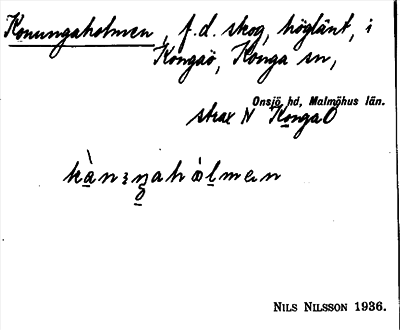 Konungaholmen, f.d. skog, höglänt, i
Kongaö, Konga sn,
Onsjö hd, Malmöhus län.
strax N Konga O
NILS NILSSON 1936.